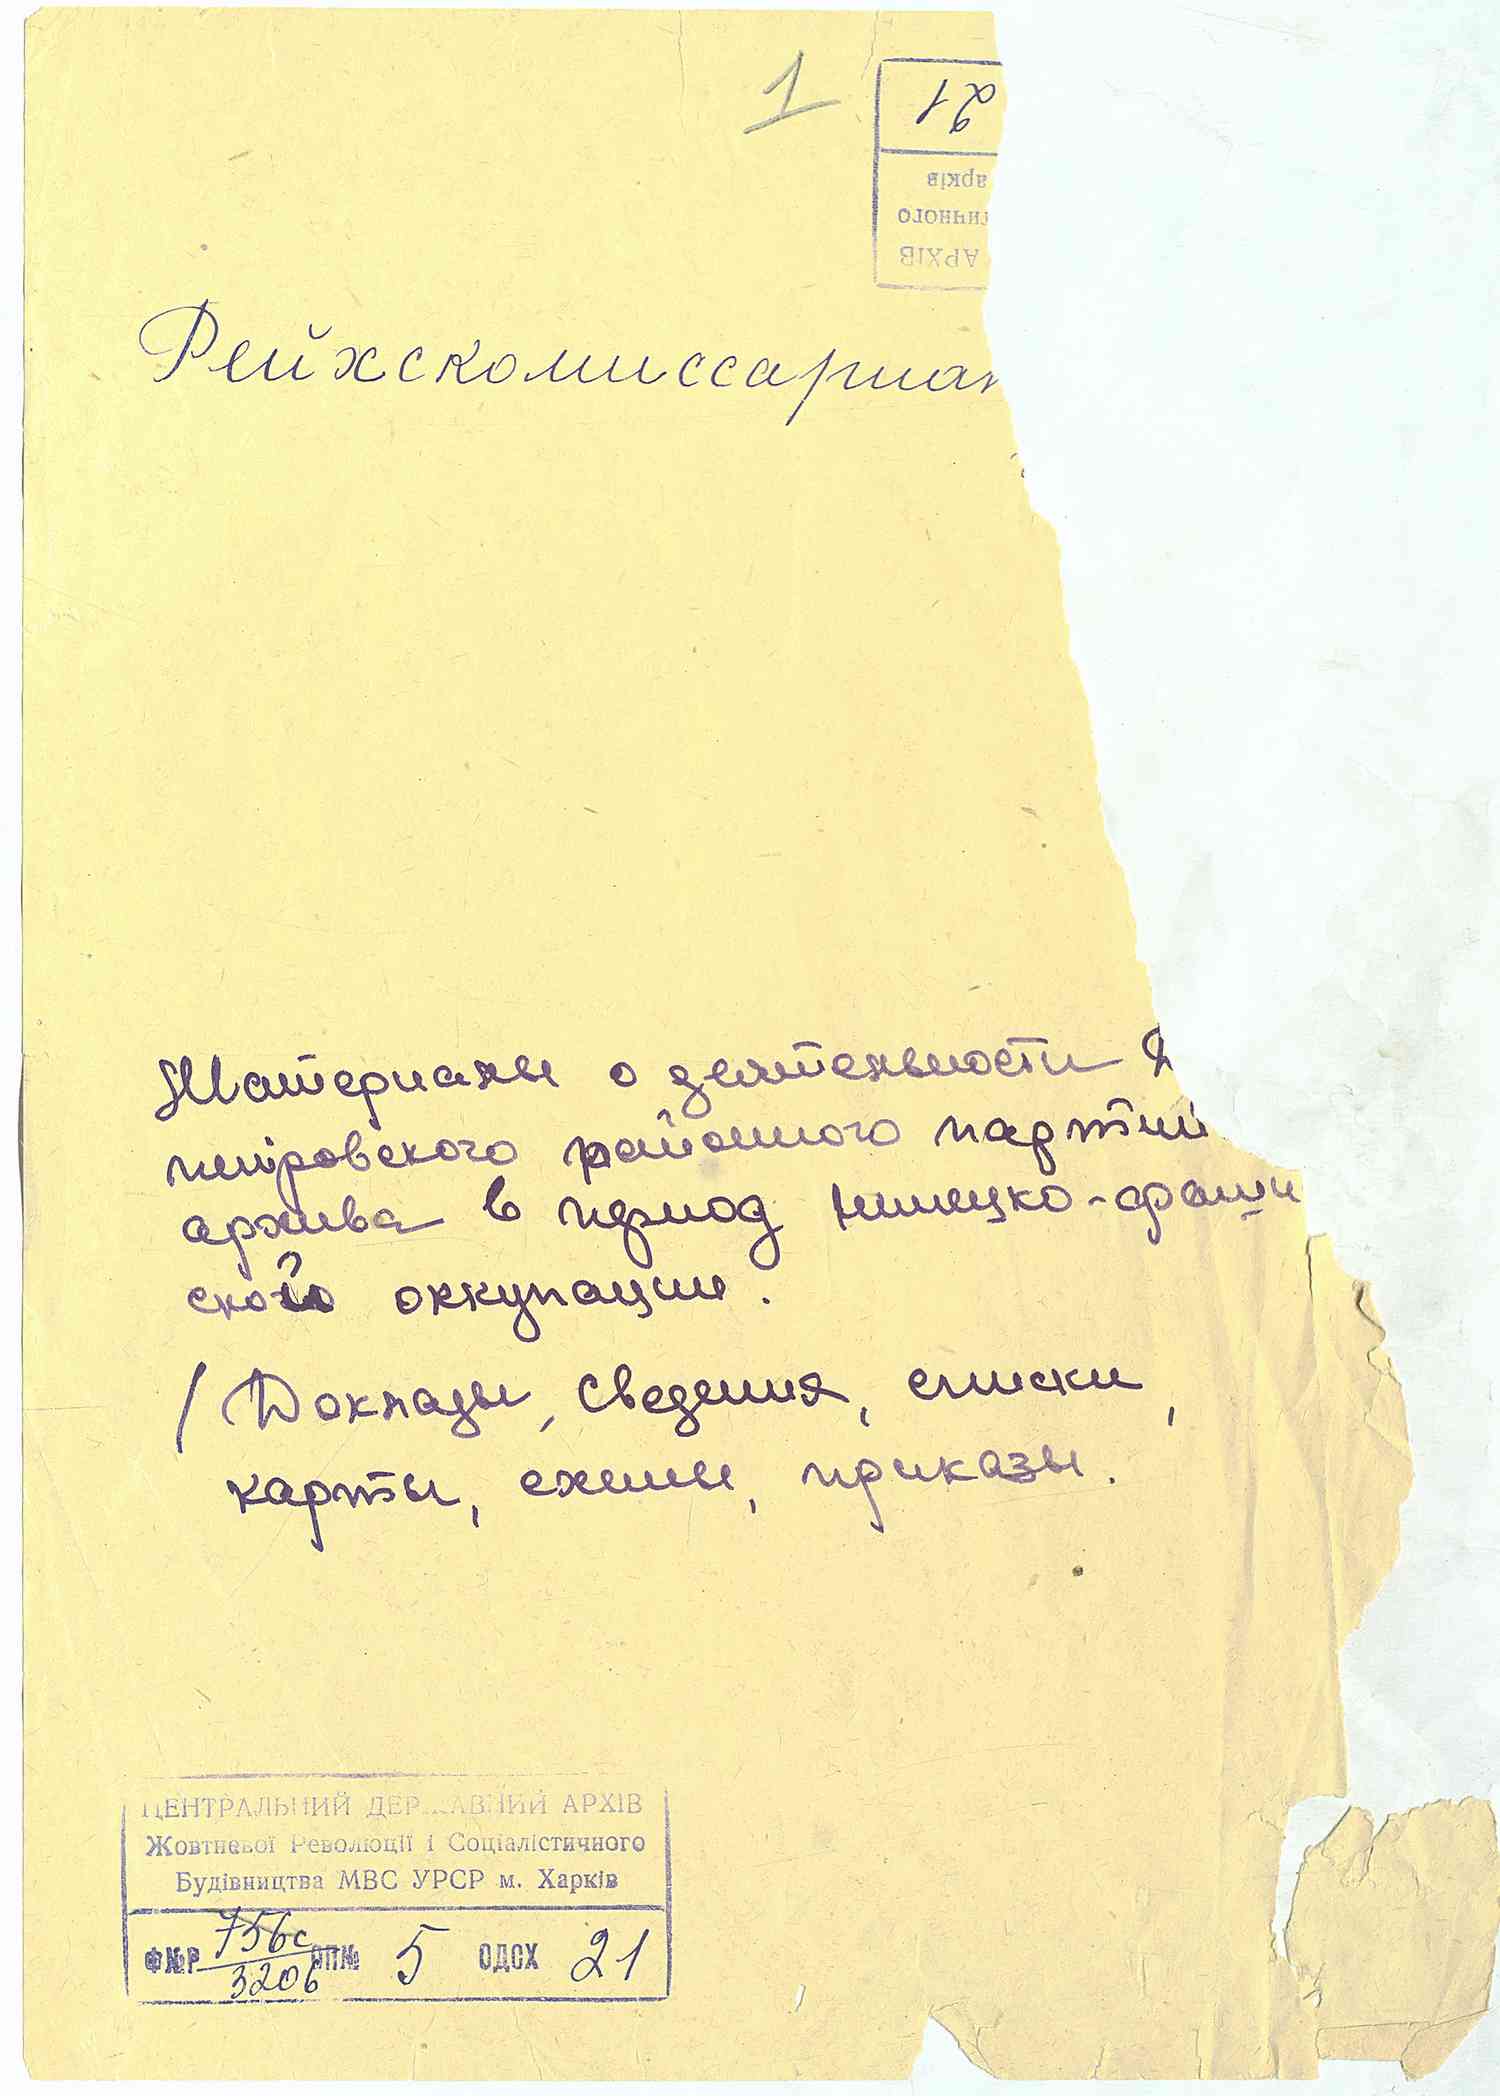 1
21
арків
ичного
АРХІВ
Рейхскомиссариат
Материалы о деятельности Д
непровского районного партий
архива в период немецко-фаши
ской оккупации.
/Доклады, сведения, списки,
карты, схемы, приказы.
ЦЕНТРАЛЬНИЙ ДЕРЖАВНИЙ АРХІВ
Жовтневої Революції і Соціалістичного
Будівництва МВС УРСР м. Харків
Ф№Р 756с ОП№ 5 ОДСХ 21
3206